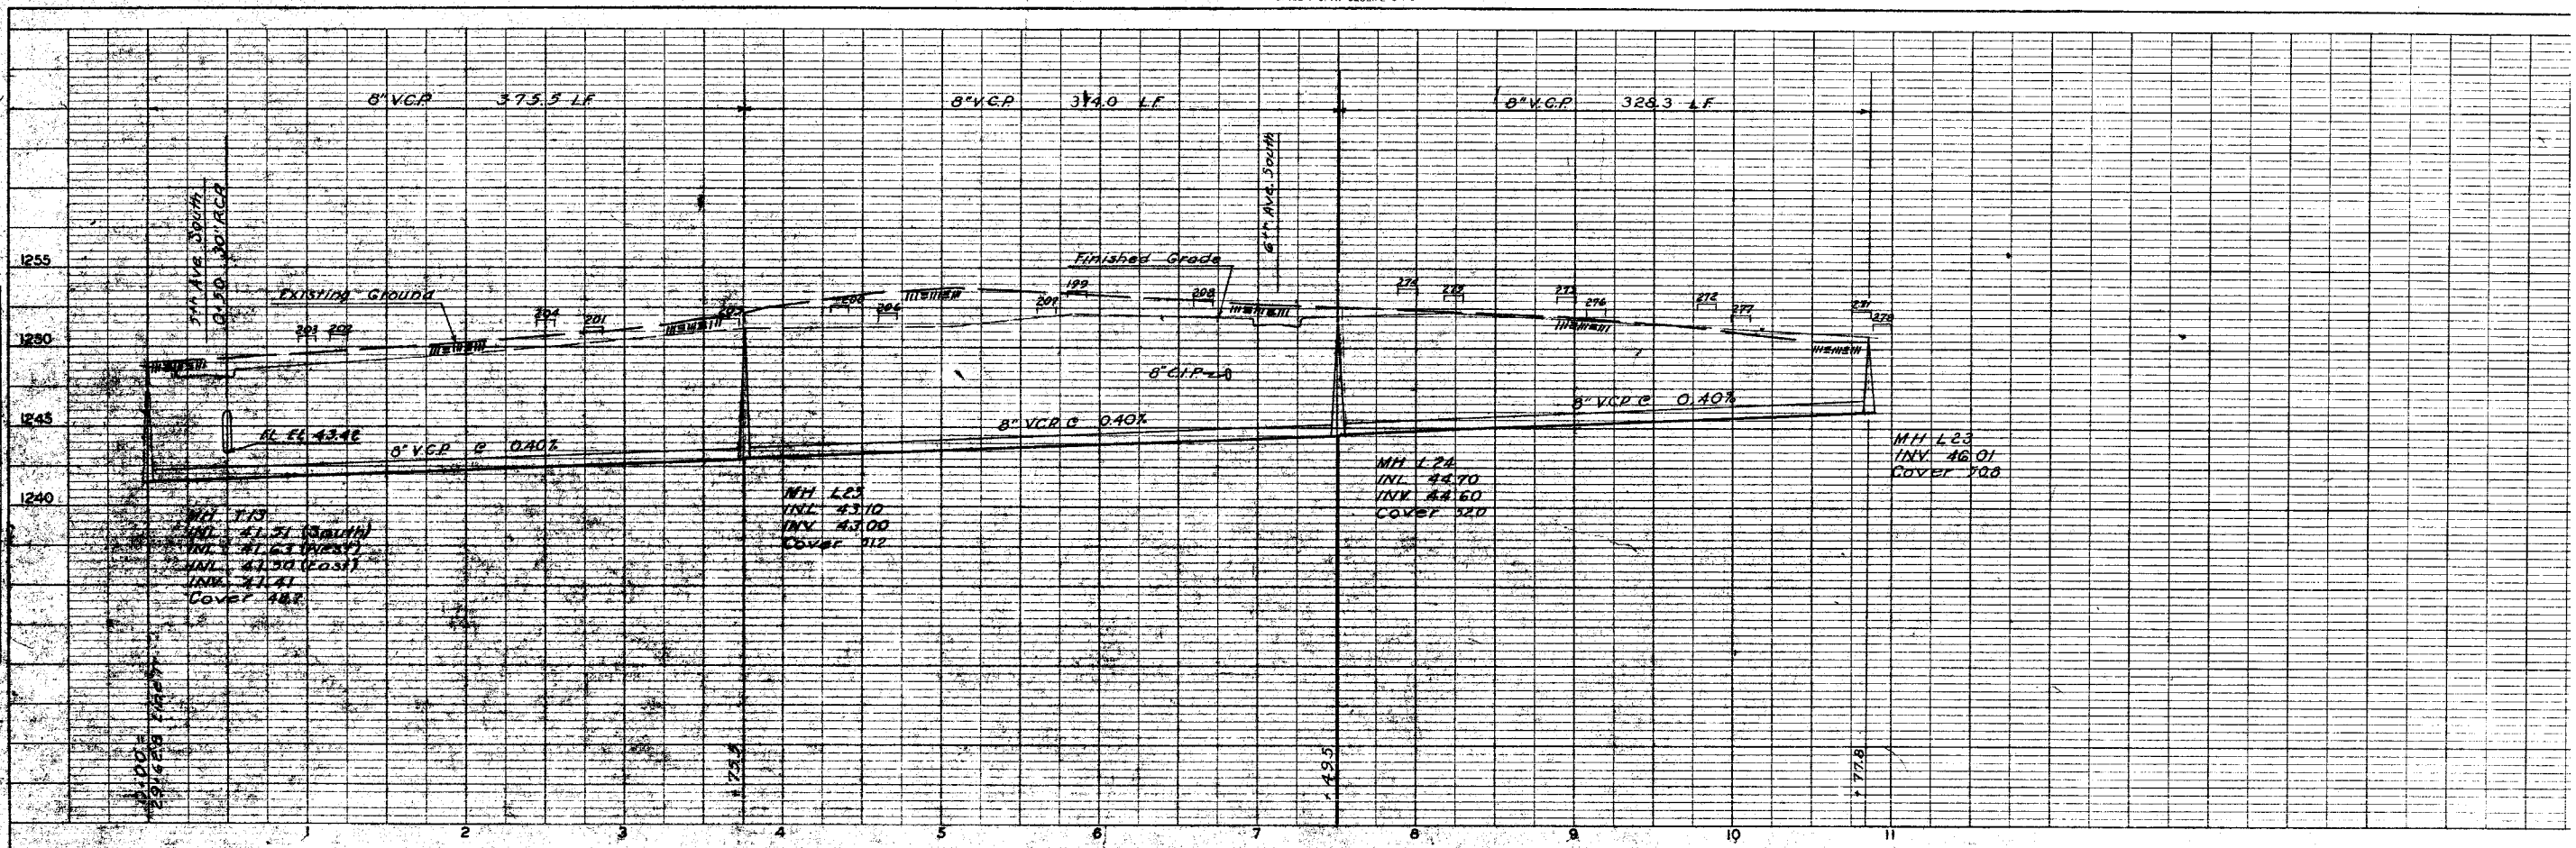 8" V.C.P. 375.5 L.F.
8" V.C.P. 374.0 L.F.
8" V.C.P. 328.3 L.F.
5th Ave. South
0+50 30" R.C.P.
6th Ave. South
1255
1250
1245
1240
Existing Ground
Finished Grade
203
202
204
201
205
206
207
199
208
274
275
273
276
272
277
271
278
8" C.I.P.
FL. EL. 43.48
8" V.C.P. @ 0.40%
8" V.C.P. @ 0.40%
8" V.C.P. @ 0.40%
MH T13
INL 41.51 (South)
INL 41.63 (West)
INL 41.50 (East)
INV 41.41
Cover 48.7
MH L25
INL 43.10
INV 43.00
Cover 51.2
MH L24
INL 44.70
INV 44.60
Cover 52.0
MH L23
INV 46.01
Cover 50.8
0+00 =
29+62.8
+75.5
+49.5
+77.8
1 2 3 4 5 6 7 8 9 10 11